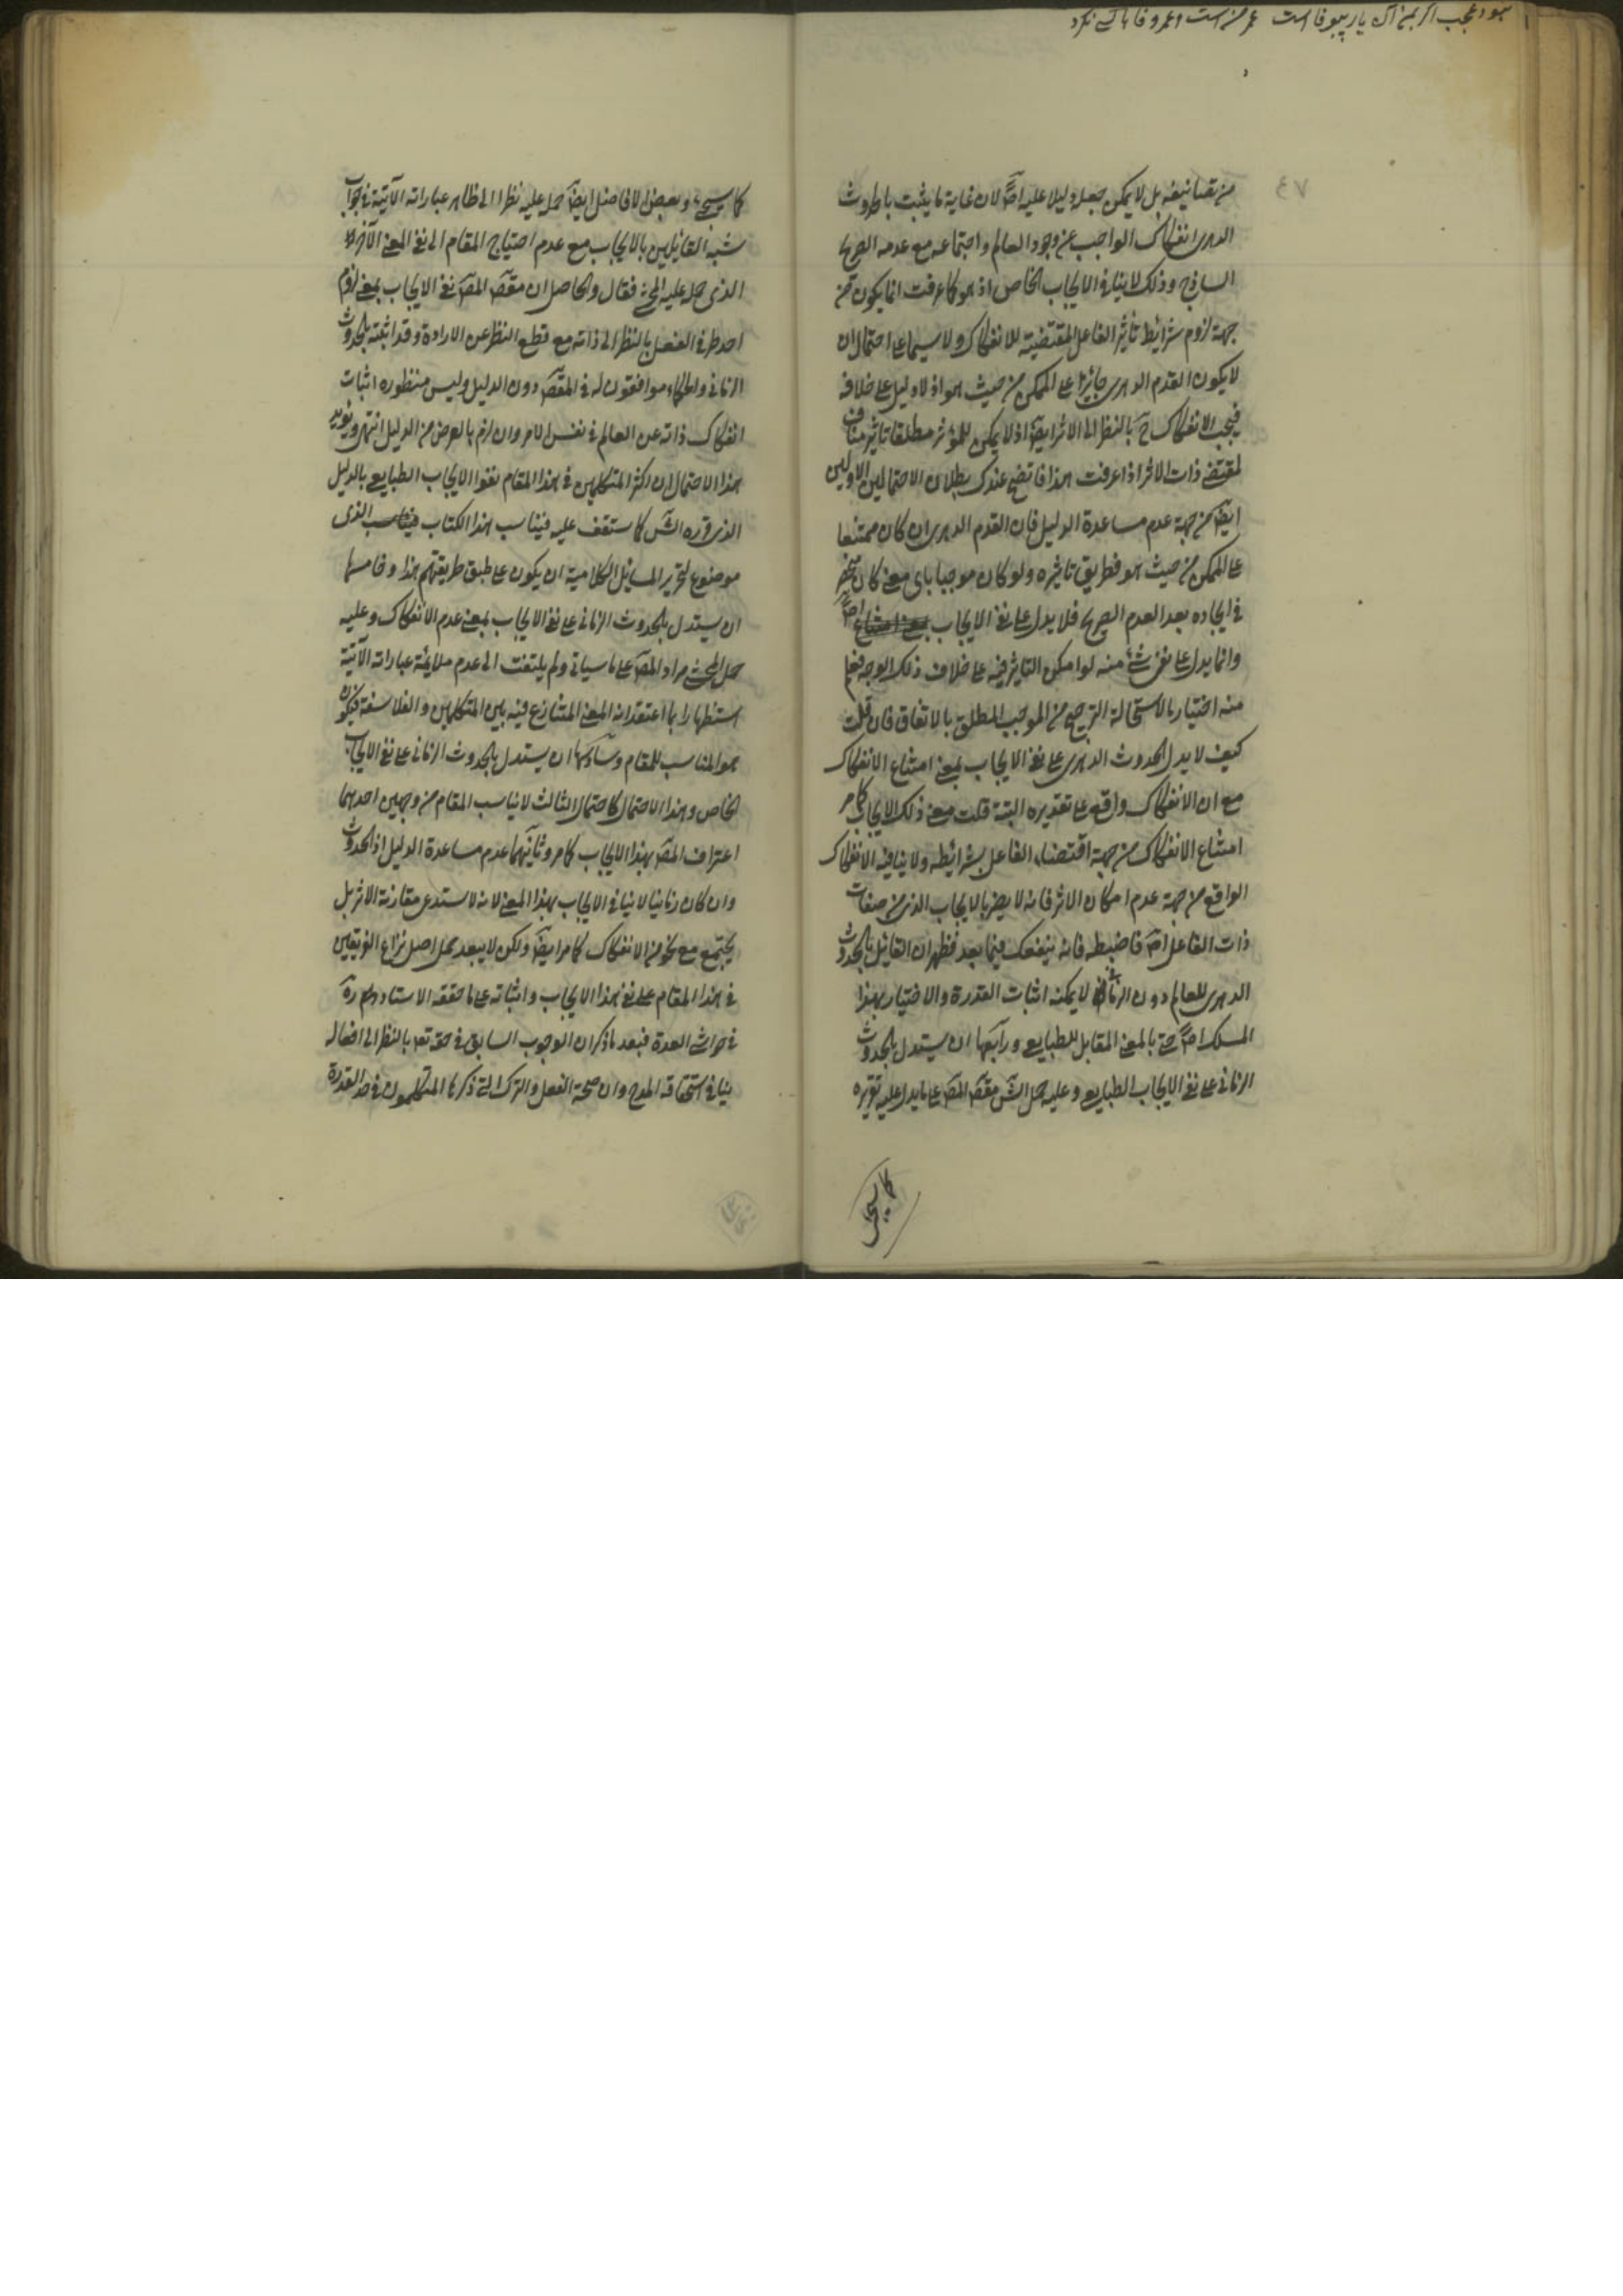 نبود عجب اگر بمن آن یار بیوفا است عمر من است و عمر وفا با کسی نکرد
٤٧
من تصانیفه بل لا یمکن جعله دلیلا علیه اصّ لان غایة ما یثبت بالحدوث
الدهری انفکاک الواجب عن وجود العالم و اجتماعه مع عدمه الصریح
الساذج و ذلک لا ینافی الایجاب الخاص اذ هو کما عرفت انما یکون من
جهة لزوم شرائط تأثیر الفاعل المقتضیة للانفکاک و لا سیما علی احتمال ان
لا یکون القدم الدهری جائزا علی الممکن من حیث هو اذ لا دلیل علی خلافه
فیجب الانفکاک ح بالنظر الی الاثر ایضّ اذ لا یمکن للمؤثر مطلقا تاثیر مناف
لمقتضی ذات الاثر اذا عرفت هذا فاتضح عندک بطلان الاحتمالین الاولین
ایضّ من جهة عدم مساعدة الدلیل فان القدم الدهری ان کان ممتنعا
علی الممکن من حیث هو فطریق تاثیره و لو کان موجبا بای معنی کان
فی ایجاده بعد العدم الصریح فلا یدل علی نفی الایجاب اصّ
و انما یدل علی نفی شیء منه لو امکن التاثیر فیه علی خلاف ذلک الوجه فیعلم
منه اختیار بالاستحالة الترجیح من الموجب المطلق بالاتفاق فان قلت
کیف لا یدل الحدوث الدهری علی نفی الایجاب بمعنی امتناع الانفکاک
مع ان الانفکاک واقع علی تقدیره البتة قلت معنی ذلک الایجاب کما مر
امتناع الانفکاک من جهة اقتضاء الفاعل بشرائطه و لا ینافیه الانفکاک
الواقع من جهة عدم امکان الاثر فانه لا یضر بالایجاب الذی من صفات
ذات الفاعل اصّ فاضبطه فانه ینفعک فیما بعد فظهر ان القائل بالحدوث
الدهری للعالم دون الزمانی لا یمکنه اثبات القدرة و الاختیار بهذا
المسلک اصّ حتی بالمعنی المقابل للطبایع و رابعها ان یستدل بالحدوث
الزمانی علی نفی الایجاب الطبایع و علیه حمل الشّ مقصّ المصّ علی ما یدل علیه تقریره
کما سیجیء
کما سیجیء و بعض الافاضل ایضّ حمل علیه نظرا الی ظاهر عباراته الآتیة فی جواب
شبه القائلین بالایجاب مع عدم احتیاج المقام الی نفی المعنی الآخر
الذی حمله علیه المحشی فقال و الحاصل ان مقصّ المصّ نفی الایجاب بمعنی لزوم
احد طرفی الفعل بالنظر الی ذاته مع قطع النظر عن الارادة و قد اثبته بالحدوث
الزمانی و الحکماء موافقون له فی المقصّ دون الدلیل و لیس منظوره اثبات
انفکاک ذاته عن العالم فی نفس الامر و ان لزم بالعرض من الدلیل انتهی و یؤید
هذا الاحتمال ان اکثر المتکلمین فی هذا المقام نفوا الایجاب الطبایع بالدلیل
الذی قرره الشّ کما ستقف علیه فیناسب هذا الکتاب الذی
موضوع لتحریر المسایل الکلامیة ان یکون علی طبق طریقتهم هذا و خامسها
ان یستدل بالحدوث الزمانی علی نفی الایجاب بمعنی عدم الانفکاک و علیه
حمل المحشی مراد المصّ علی ما سیاتی و لم یلتفت الی عدم ملایمة عباراته الآتیة
استظهارا بما اعتقد انه المعنی المتنازع فیه بین المتکلمین و الفلاسفة فیکون
هو المناسب للمقام و سادسها ان یستدل بالحدوث الزمانی علی نفی الایجاب
الخاص و هذا الاحتمال کاحتمال الثالث لا یناسب المقام من وجهین احدهما
اعتراف المصّ بهذا الایجاب کما مر و ثانیهما عدم مساعدة الدلیل اذ الحدوث
و ان کان زمانیا لا ینافی الایجاب بهذا المعنی لانه لا یستدعی مقارنة الاثر بل
یجتمع مع نحو من الانفکاک کما مر ایضّ و لکن لا یبعد حمل اصل نزاع الفریقین
فی هذا المقام علی نفی هذا الایجاب و اثباته علی ما حققه الاستاد
فی حواشی العدة فبعد ما ذکر ان الوجوب السابق فی حقه تعّ بالنظر الی افعاله
ینافی استحقاقه المدح و ان صحة الفعل و الترک التی ذکرها المتکلمون فی حد القدرة